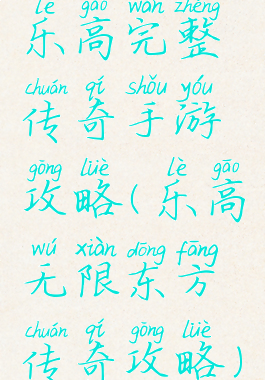 lè gāo wán zhěng
乐高完整
chuán qí shǒu yóu
传奇手游
gōng lüè lè gāo
攻略(乐高
wú xiàn dōng fāng
无限东方
chuán qí gōng lüè
传奇攻略)